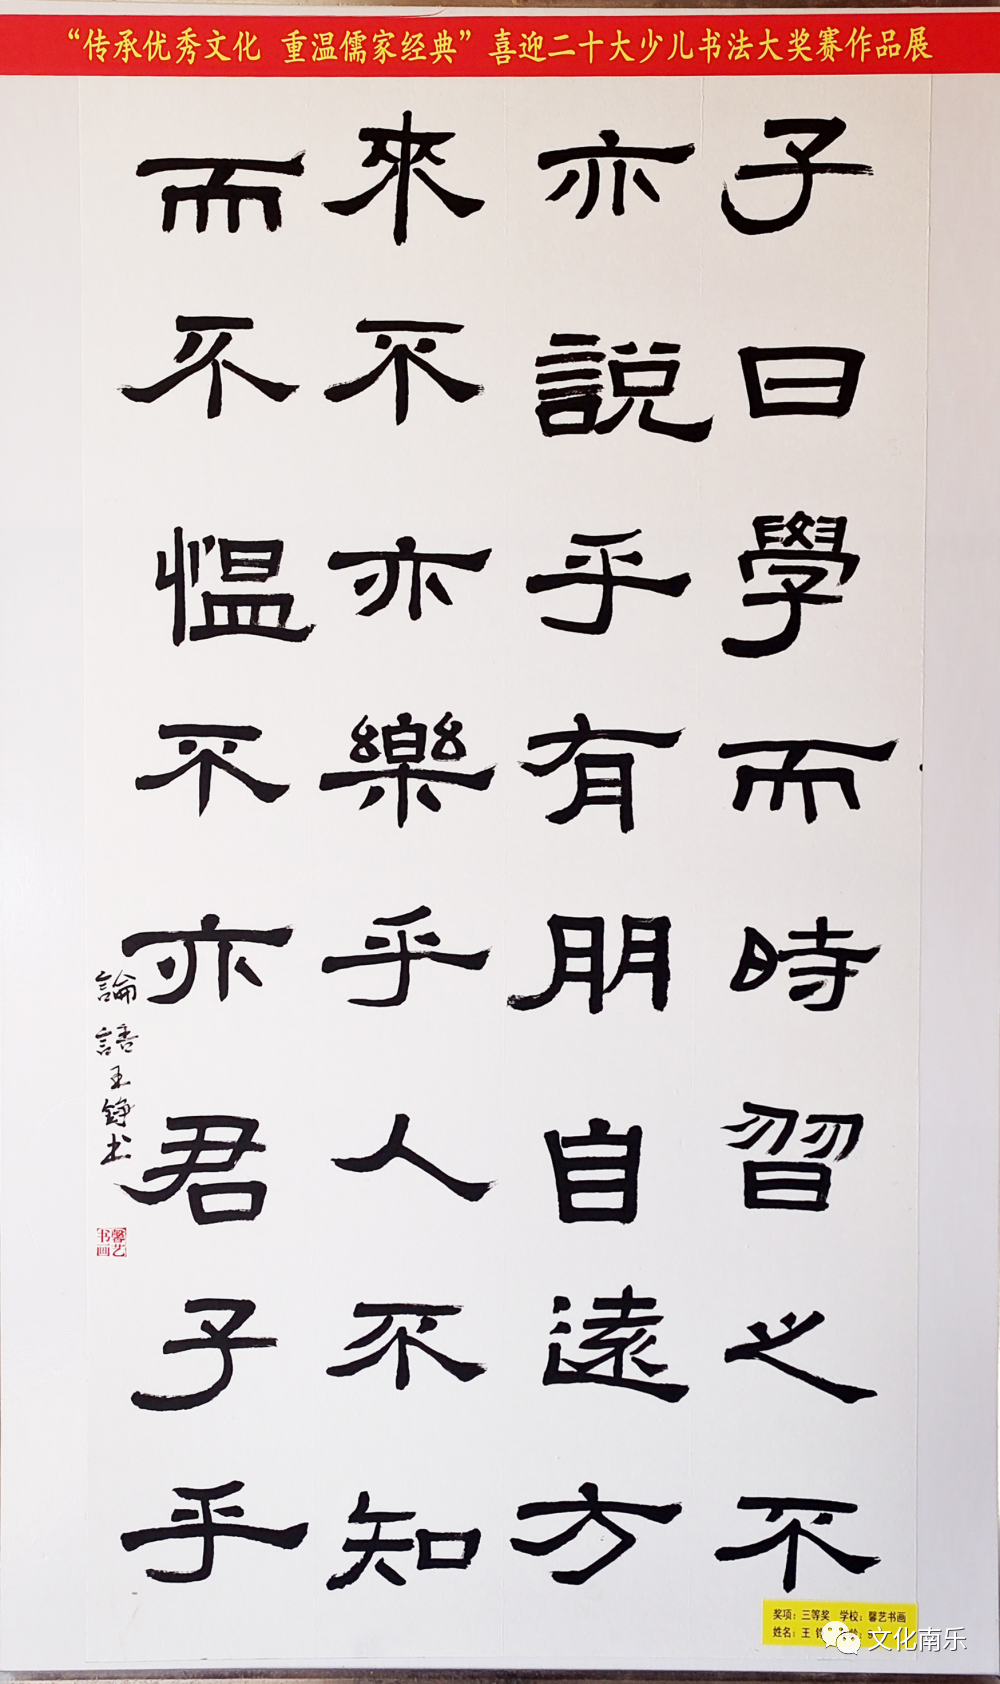 “传承优秀文化 重温儒家经典”喜迎二十大少儿书法大奖赛作品展
子曰學而時習之不
亦説乎有朋自遠方
來不亦樂乎人不知
而不愠不亦君子乎
論語王铮书
馨艺书画
奖项：三等奖 学校：馨艺书画
姓名：王
文化南乐